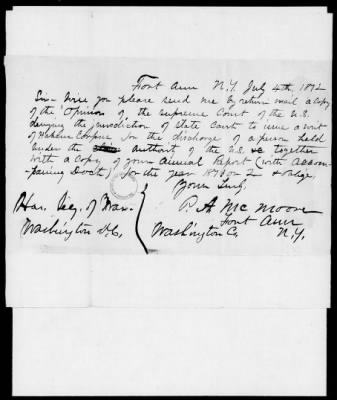 Fort Ann N.Y. July 4th, 1872
Sir - Will you please send me by return mail a copy
of the Opinion of the Supreme Court of the U.S.
denying the jurisdiction of State Courts to issue a writ
of Habeas Corpus for the discharge of a person held
under the authority of the U.S. together
with a Copy of your Annual Report (with accom-
-panying Doct) for the year 1871 or 2 & oblige.
Yours truly,
Hon. Secy. of War.
Washington D.C.
P. A. McMoore
Fort Ann
Washington Co. N.Y.